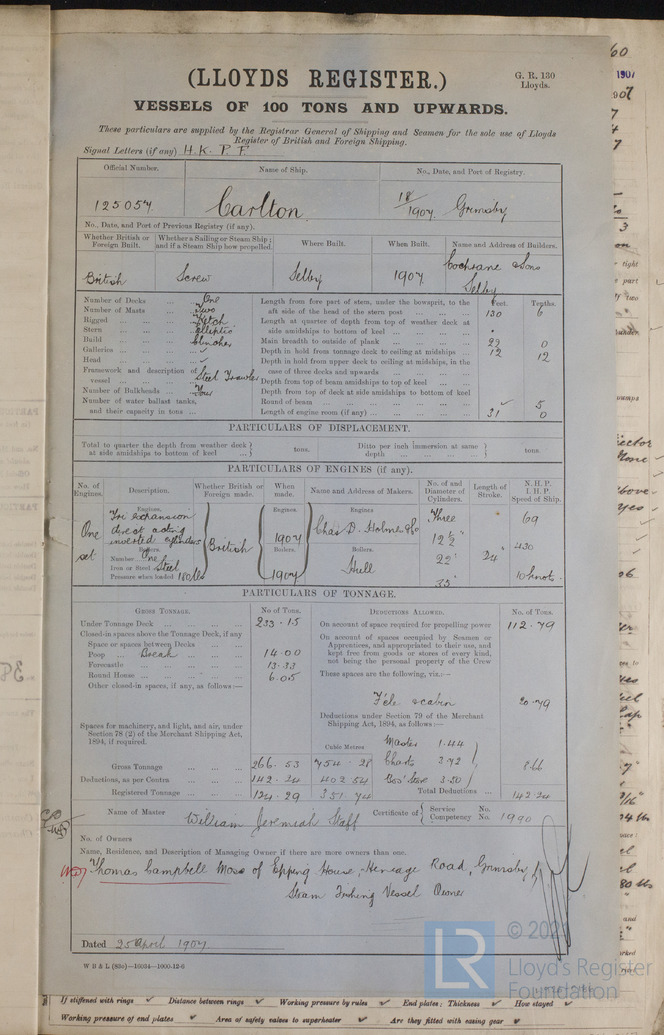 (LLOYDS REGISTER.)
G. R. 130
Lloyds.
VESSELS OF 100 TONS AND UPWARDS.
These particulars are supplied by the Registrar General of Shipping and Seamen for the sole use of Lloyds
Register of British and Foreign Shipping.
Signal Letters (if any) H. K. P. F.
Official Number. Name of Ship. No., Date, and Port of Registry.
125057 Carlton. 18/1907 Grimsby
No., Date, and Port of Previous Registry (if any).
Whether British or Foreign Built. Whether a Sailing or Steam Ship; and if a Steam Ship how propelled. Where Built. When Built. Name and Address of Builders.
British Screw Selby 1907 Cochrane & Sons Selby
Number of Decks ... One
Number of Masts ... Two
Rigged ... Ketch
Stern ... Elliptic
Build ... Clincher
Galleries ... ✓
Head ... ✓
Framework and description of vessel ... Steel Trawler
Number of Bulkheads ... Four
Number of water ballast tanks, and their capacity in tons ...
Feet. Tenths.
Length from fore part of stem, under the bowsprit, to the aft side of the head of the stern post ... 130 6
Length at quarter of depth from top of weather deck at side amidships to bottom of keel ...
Main breadth to outside of plank ... 22 0
Depth in hold from tonnage deck to ceiling at midships ... 12 12
Depth in hold from upper deck to ceiling at midships, in the case of three decks and upwards
Depth from top of beam amidships to top of keel ...
Depth from top of deck at side amidships to bottom of keel
Round of beam ... ✓ 5
Length of engine room (if any) ... 31 0
PARTICULARS OF DISPLACEMENT.
Total to quarter the depth from weather deck at side amidships to bottom of keel ... tons. Ditto per inch immersion at same depth ... tons.
PARTICULARS OF ENGINES (if any).
No. of Engines. Description. Whether British or Foreign made. When made. Name and Address of Makers. No. of and Diameter of Cylinders. Length of Stroke. N. H. P. I. H. P. Speed of Ship.
Engines. Engines. Engines
One set Tri expansion direct acting inverted cylinders British 1907 Chas D. Holmes & Co Three 69
12½" 430
Boilers. Boilers. Boilers.
Number One
Iron or Steel Steel 1907 Hull 22" 24"
Pressure when loaded 180 lbs 35" 10 knots
PARTICULARS OF TONNAGE.
GROSS TONNAGE. No of Tons. DEDUCTIONS ALLOWED. No. of Tons.
Under Tonnage Deck ... 233.15 On account of space required for propelling power 112.79
Closed-in spaces above the Tonnage Deck, if any
Space or spaces between Decks ...
Poop ... Break 14.00
Forecastle ... 13.33
Round House ... 6.05
Other closed-in spaces, if any, as follows:—
On account of spaces occupied by Seamen or Apprentices, and appropriated to their use, and kept free from goods or stores of every kind, not being the personal property of the Crew
These spaces are the following, viz.:—
F'cle & cabin 20.79
Spaces for machinery, and light, and air, under Section 78 (2) of the Merchant Shipping Act, 1894, if required.
Deductions under Section 79 of the Merchant Shipping Act, 1894, as follows:—
Cubic Metres Master 1.44
Gross Tonnage ... 266.53 754.28 Charts 3.72 8.66
Deductions, as per Contra ... 142.24 402.54 Bos' Store 3.50
Registered Tonnage ... 124.29 351.74 Total Deductions ... 142.24
Name of Master William Jeremiah Staff Certificate of Service No. Competency No. 1990
No. of Owners
Name, Residence, and Description of Managing Owner if there are more owners than one.
Thomas Campbell Moss of Epping House, Heneage Road, Grimsby
Steam Fishing Vessel Owner
Dated 25 April 1907
W B & L (83c)—10034—1000-12-6
LR
© 202
Lloyd's Register
Foundation
If stiffened with rings ✓ Distance between rings ✓ Working pressure by rules ✓ End plates: Thickness ✓ How stayed ✓
Working pressure of end plates ✓ Area of safety valves to superheater ✓ Are they fitted with easing gear ✓